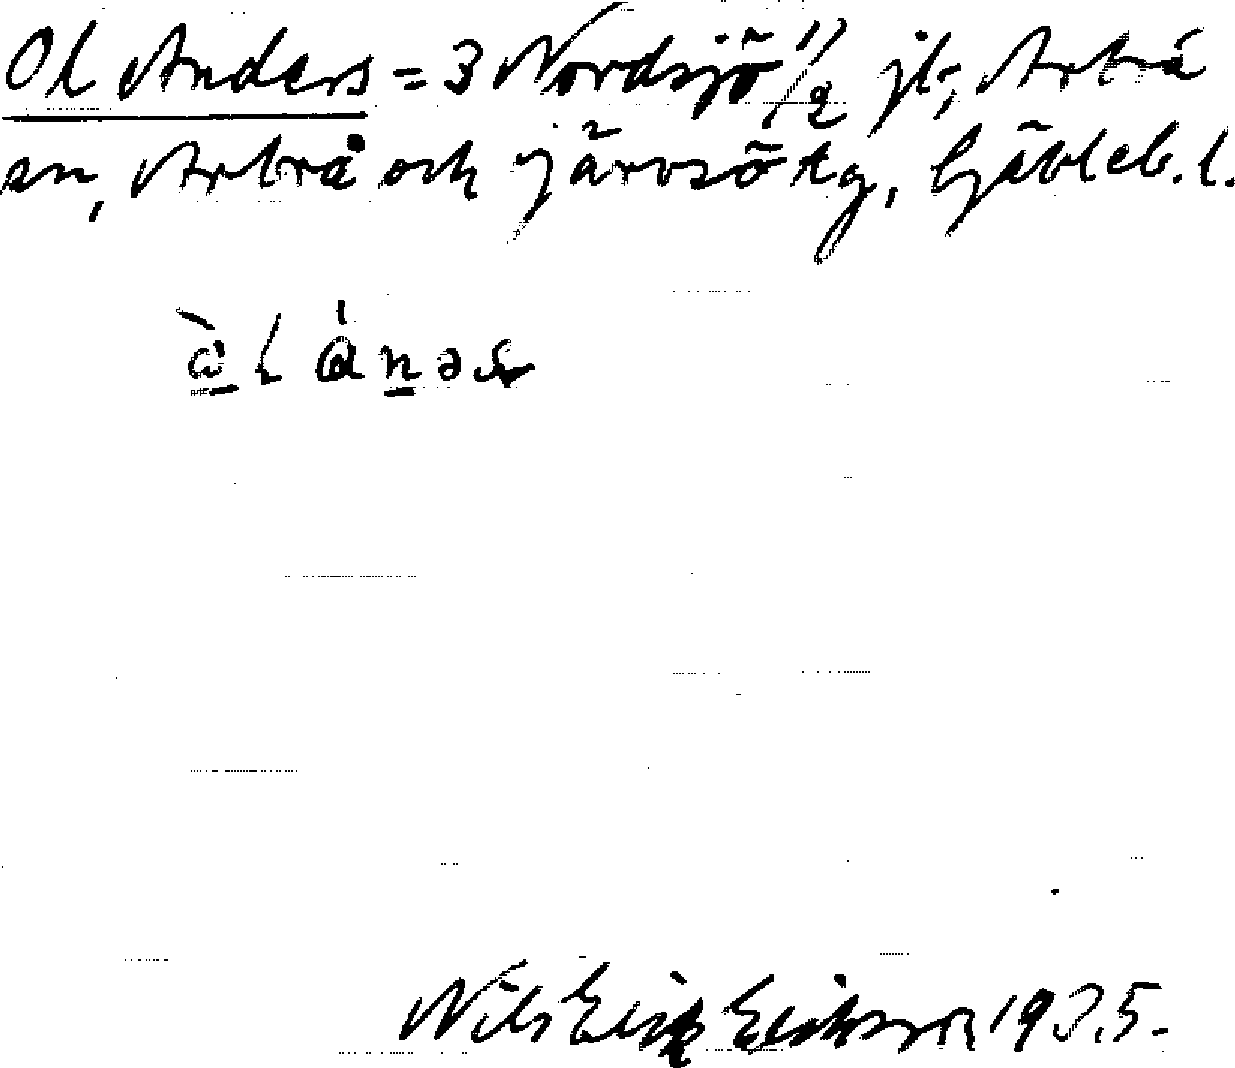 Ol Anders = 3 Nordsjö 1/2 jb, Arbrå
sn, Arbrå och Järvsö tg, Gävleb. l.
Nils Erik Eriksson 1935.